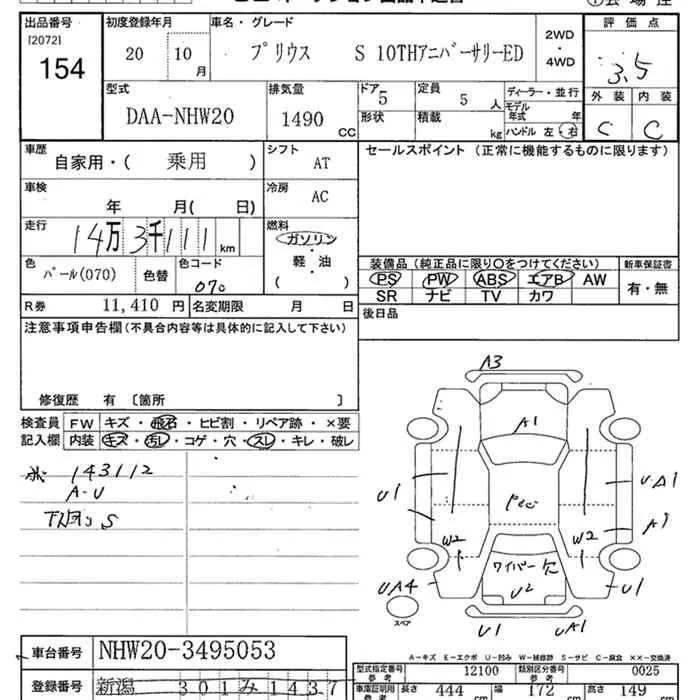 出品番号 初度登録年月 車名・グレード 評価点
[2072] 154 20 10月 プリウス S 10THアニバーサリーED 2WD・4WD 3.5
型式 排気量 ドア 定員 ディーラー・並行 外装 内装
DAA-NHW20 1490 CC 5 5人 モデル年式 年 C C
形状 積載 kg ハンドル 左・右
車歴 シフト セールスポイント (正常に機能するものに限ります)
自家用・( 乗用 ) AT
車検 冷房
年 月( 日) AC
走行 燃料
14万3千111km ガソリン
軽・油
( )
色 色替 色コード 装備品 (純正品に限り○をつけてください) 新車保証書
パール(070) 070 PS PW ABS エアB AW 有・無
SR ナビ TV カワ
R券 11,410 円 名変期限 月 日 後日品
注意事項申告欄 (不具合内容等は具体的に記入して下さい)
修復歴 有 [箇所 ]
検査員 FW キズ・飛石・ヒビ割・リペア跡・×要
記入欄 内装 キズ・汚レ・コゲ・穴・スレ・キレ・破レ
143112
A-U
S
A3
A1
U1
UA1
A1
W2 W2
ワイパー欠
U2
UA4 U1
スペア
U1 UA1
A-キズ E-エクボ U-凹み W-補修跡 S-サビ C-腐食 ××-交換済
車台番号 NHW20-3495053
型式指定番号 参考 12100 類別区分番号 参考 0025
登録番号 新潟 301み1437
車庫証明用 参考 長さ 444 cm 幅 172 cm 高さ 149 cm